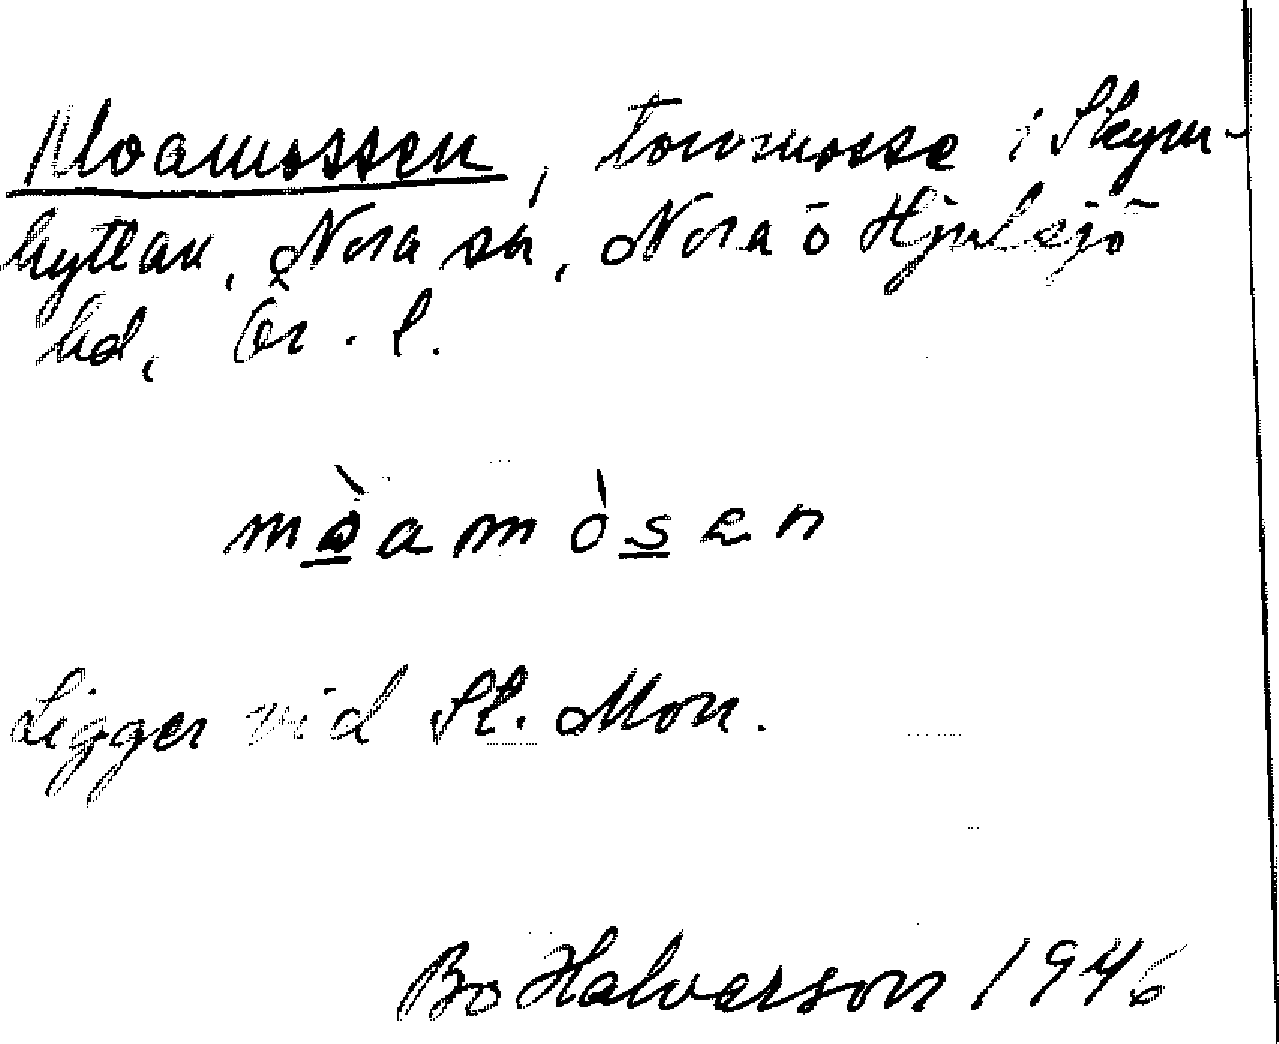 Moamossen, torvmosse i Skym-
hyttan, Nora sn, Nora o Hjulsjö
hd, Ör. l.
mòamòsen
Ligger vid St. Mon.
Bo Halvarson 1946